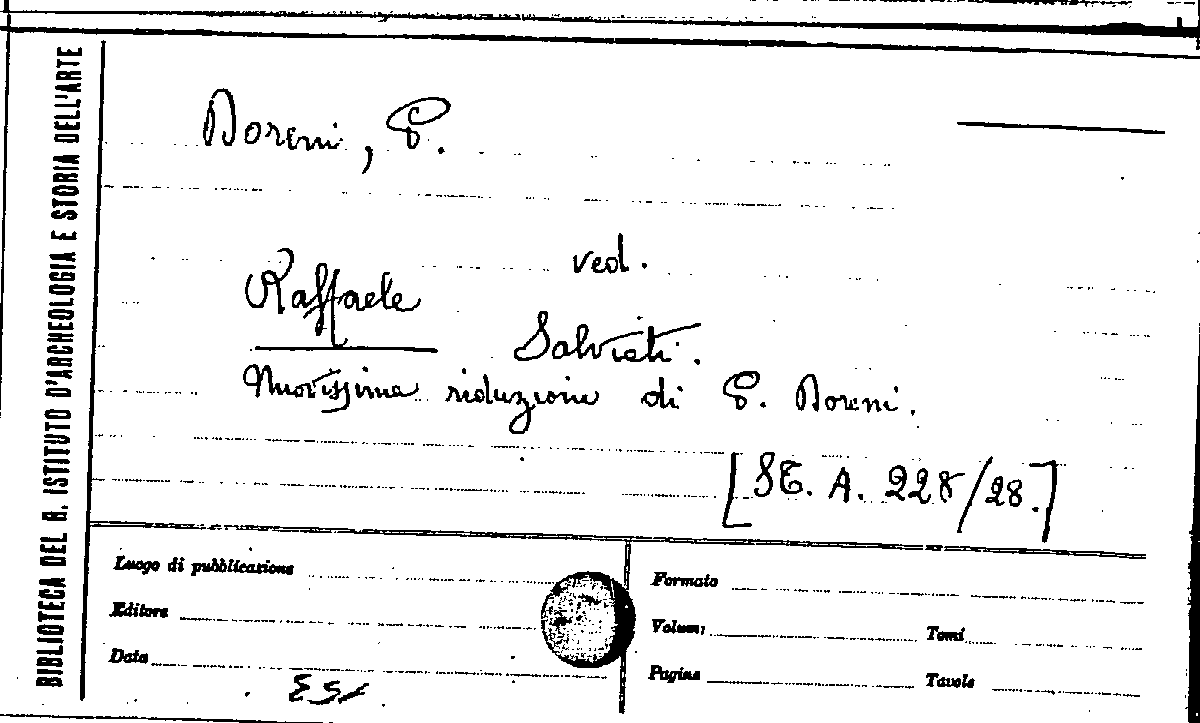 BIBLIOTECA DEL R. ISTITUTO D'ARCHEOLOGIA E STORIA DELL'ARTE
Doreni, E.
ved.
Raffaele
Salviati.
Nuovissima riduzione di E. Doreni.
[ST. A. 228/28.]
Luogo di pubblicazione
Editore
Data
Formato
Volumi
Tomi
Pagine
Tavole